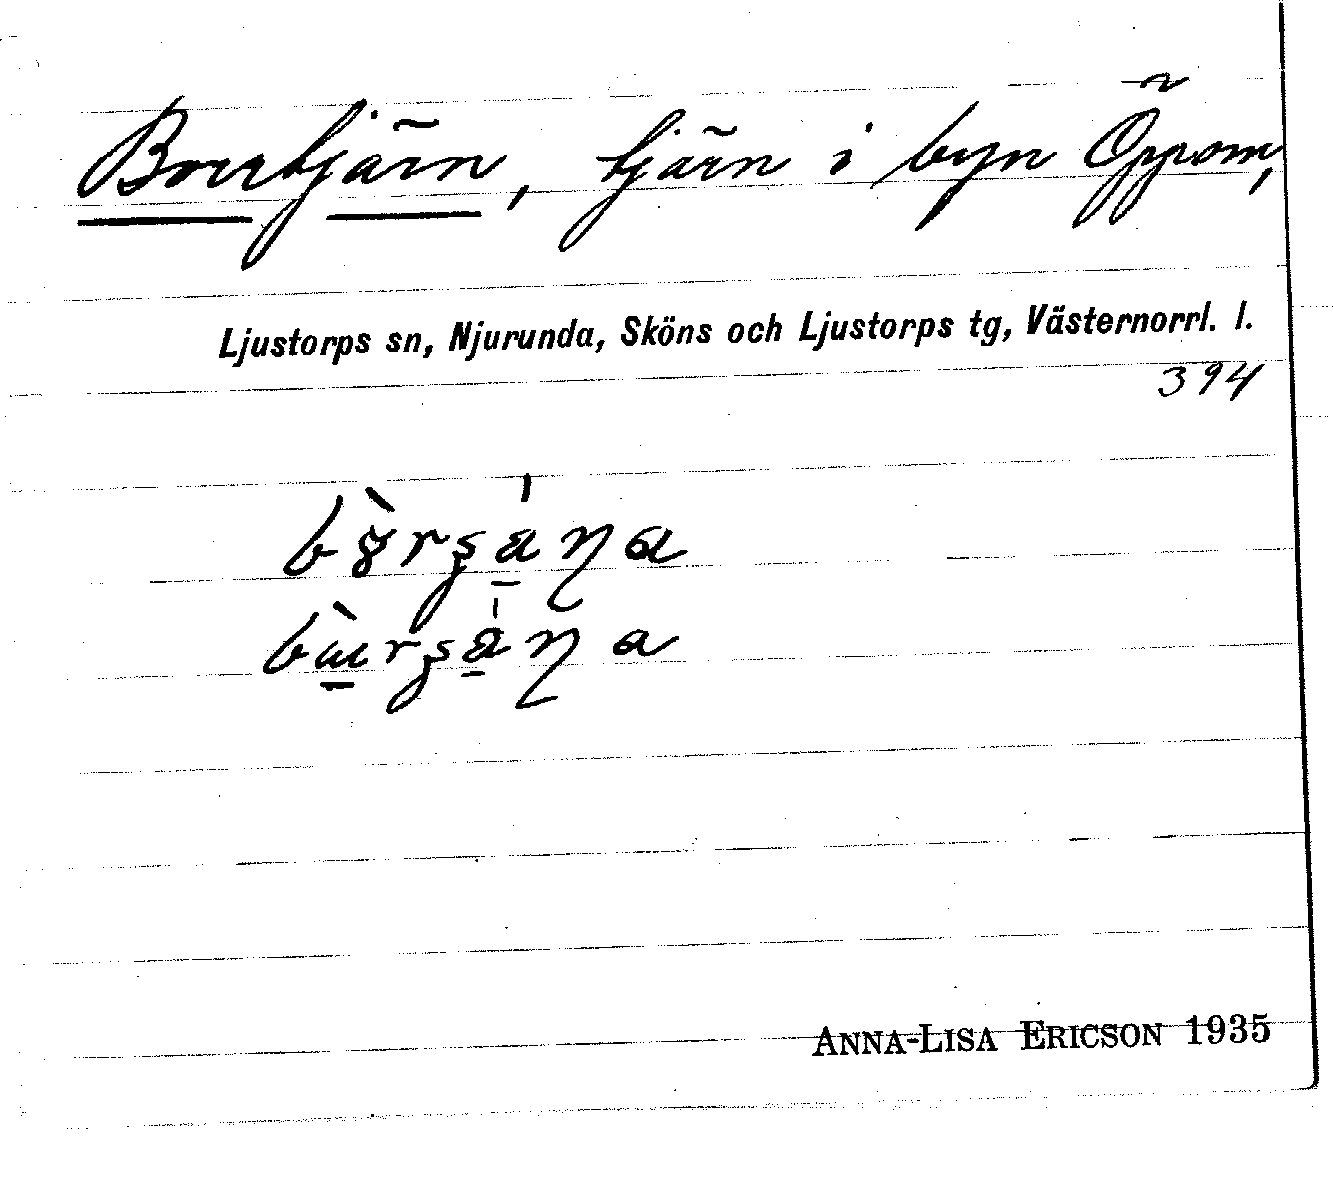 Borrtjärn, tjärn i byn Öppom,
Ljustorps sn, Njurunda, Sköns och Ljustorps tg, Västernorrl. l.
394
ANNA-LISA ERICSON 1935